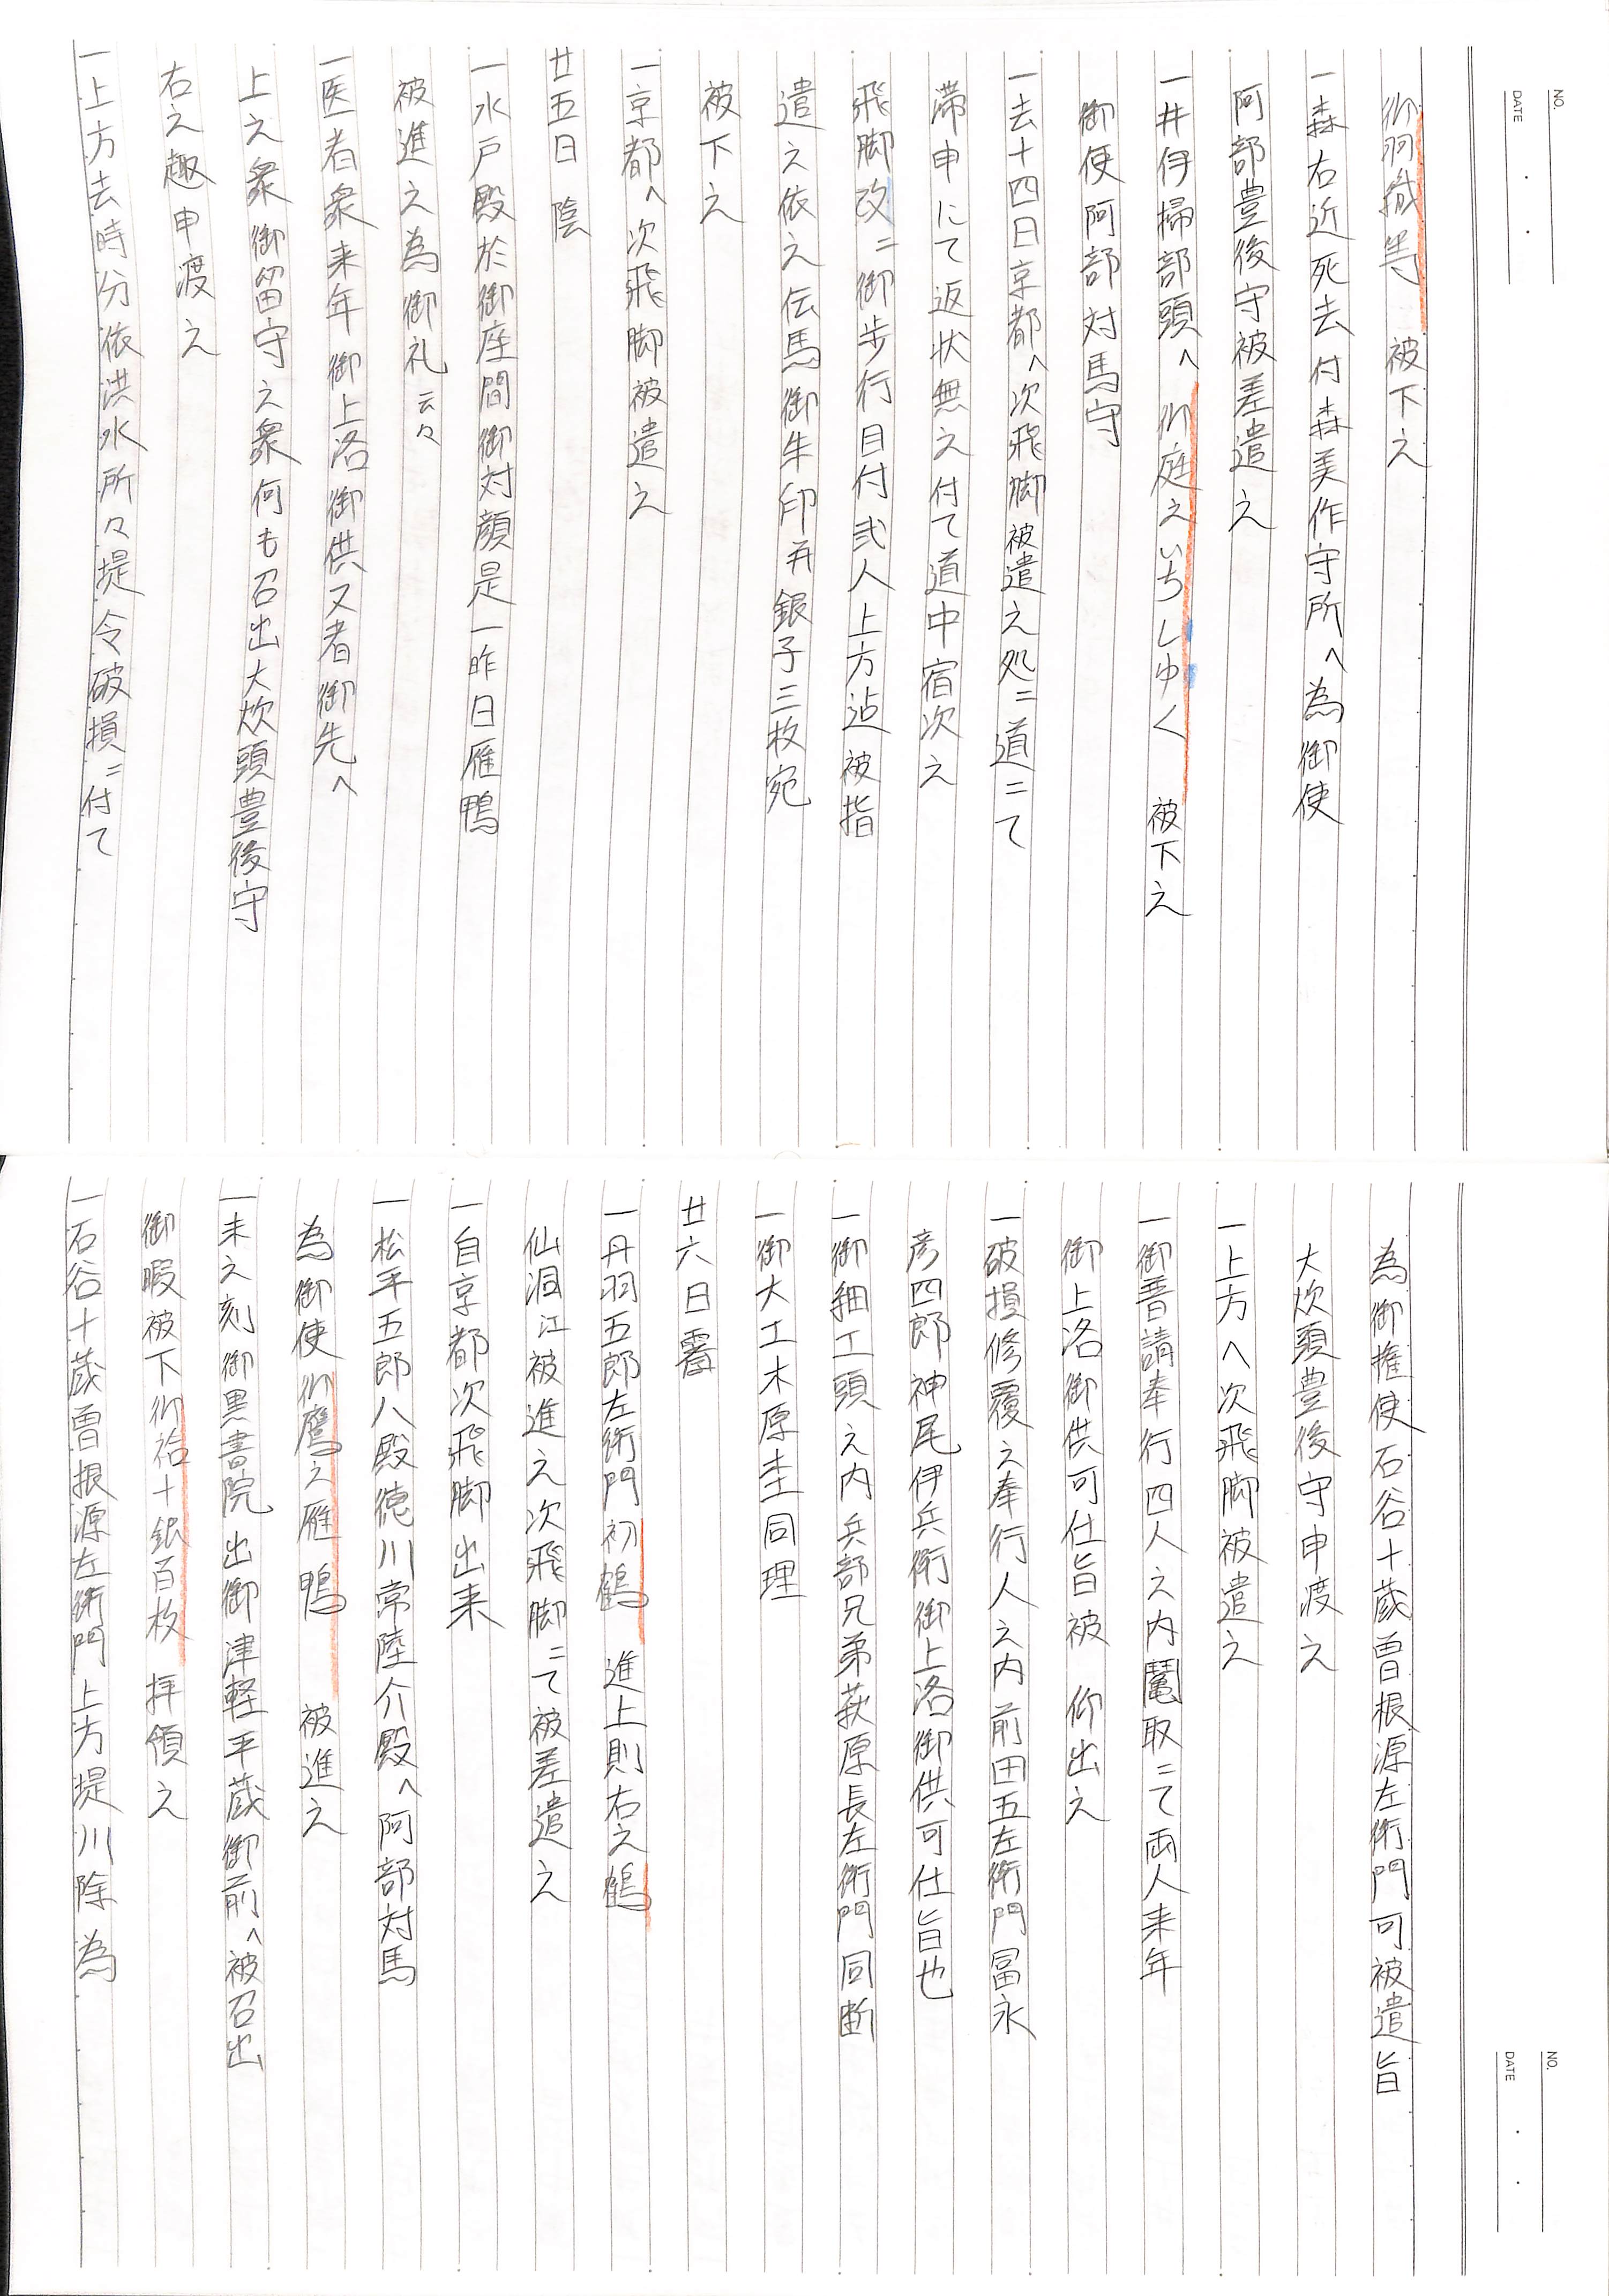 NO.
DATE
御羽織等 被下之
一森右近死去付森美作守所へ為御使
阿部豊後守被差遣之
一井伊掃部頭へ 御庭之いちしゆく 被下之
御使阿部対馬守
一去十四日京都へ次飛脚被遣之処ニ道ニて
滞申にて返状無之付て道中宿次之
飛脚改ニ御歩行目付弐人上方迠被指
遣之依之伝馬御朱印并銀子三枚宛
被下之
一京都へ次飛脚被遣之
廿五日 陰
一水戸殿於御座間御対顔是一昨日雁鴨
被進之為御礼云々
一医者衆来年御上洛御供又者御先へ
上之衆御留守之衆何も召出大炊頭豊後守
右之趣申渡之
一上方去時分依洪水所々堤令破損ニ付て
NO.
DATE
為御検使石谷十蔵曽根源左衛門可被遣旨
大炊頭豊後守申渡之
一上方へ次飛脚被遣之
一御普請奉行四人之内鬮取ニて両人来年
御上洛御供可仕旨被 仰出之
一破損修覆之奉行人之内前田五左衛門冨永
彦四郎神尾伊兵衛御上洛御供可仕旨也
一御細工頭之内兵部兄弟萩原長左衛門同断
一御大工木原杢同理
廿六日 霽
一丹羽五郎左衛門初鶴 進上則右之鶴
仙洞江被進之次飛脚ニて被差遣之
一自京都次飛脚出来
一松平五郎八殿徳川常陸介殿へ阿部対馬
為御使御鷹之雁鴨 被進之
一未之刻御黒書院出御津軽平蔵御前へ被召出
御暇被下御袷十銀百枚 拝領之
一石谷十蔵曽根源左衛門上方堤川除為